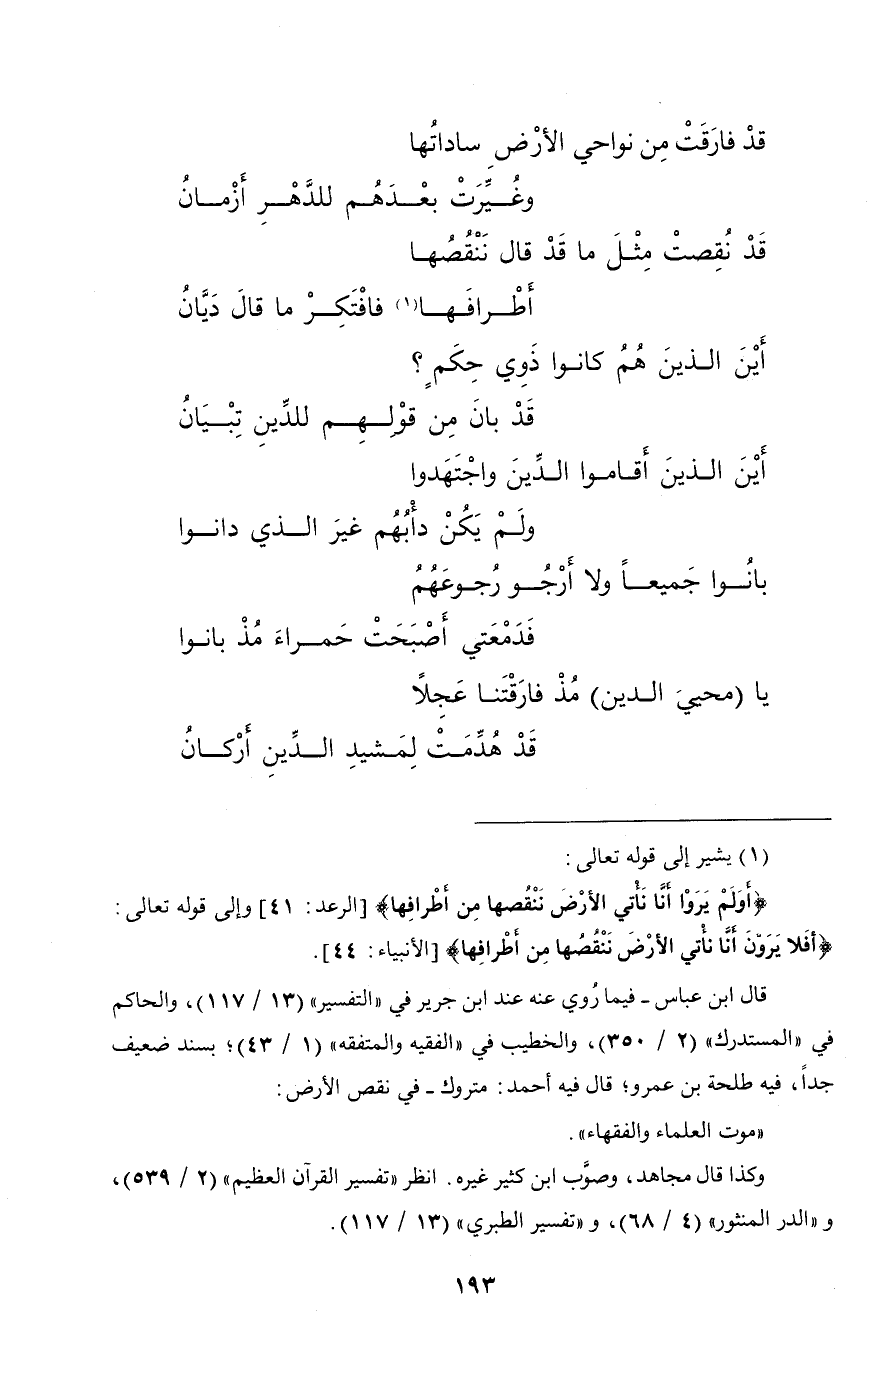 قدْ فارَقَتْ مِن نواحي الأرْضِ ساداتُها
وغُـــيِّرَتْ بعْـــدَهُـــم للدَّهْـــرِ أزْمـــانُ
قَدْ نُقِصتْ مِثْـلَ ما قَدْ قال نَنْقُصُهـا
أطْـــرافَـهـــا(١) فافْتَكِـــرْ ما قالَ دَيَّانُ
أيْنَ الـذينَ هُمُ كانـوا ذَوي حِكَمٍ ؟
قَدْ بانَ مِن قوْلِـــهِـــم للدِّينِ تِبْـــيَانُ
أيْنَ الـذينَ أقـامـوا الـدِّينَ واجْتَهَدوا
ولَـــمْ يَكُنْ دأبُهُم غيرَ الـــذي دانـــوا
بانُـــوا جَميعـــاً ولا أرْجُـــو رُجـوعَهُمُ
فَدَمْعَتي أصْبَحَتْ حَمـــراءَ مُذْ بانـوا
يا (محييَ الـدين) مُذْ فارَقْتَنـا عَجِلًا
قَدْ هُدِّمَـــتْ لِمَـــشيدِ الـــدِّينِ أرْكـــانُ
(١) يشير إلى قوله تعالى :
﴿أوَلَمْ يَرَوْا أنَّا نَأْتي الأرْضَ نَنْقُصها مِن أطْرافِها﴾ [الرعد: ٤١] وإلى قوله تعالى :
﴿أفَلا يَرَوْنَ أنَّا نأْتي الأرْضَ نَنْقُصُها مِن أطْرافِها﴾ [الأنبياء: ٤٤].
قال ابن عباس ـ فيما رُوي عنه عند ابن جرير في «التفسير» (١٣ / ١١٧)، والحاكم
في «المستدرك» (٢ / ٣٥٠)، والخطيب في «الفقيه والمتفقه» (١ / ٤٣)؛ بسند ضعيف
جداً، فيه طلحة بن عمرو؛ قال فيه أحمد: متروك ـ في نقص الأرض :
«موت العلماء والفقهاء» .
وكذا قال مجاهد، وصوَّب ابن كثير غيره. انظر «تفسير القرآن العظيم» (٢ / ٥٣٩)،
و «الدر المنثور» (٤ / ٦٨)، و «تفسير الطبري» (١٣ / ١١٧).
١٩٣